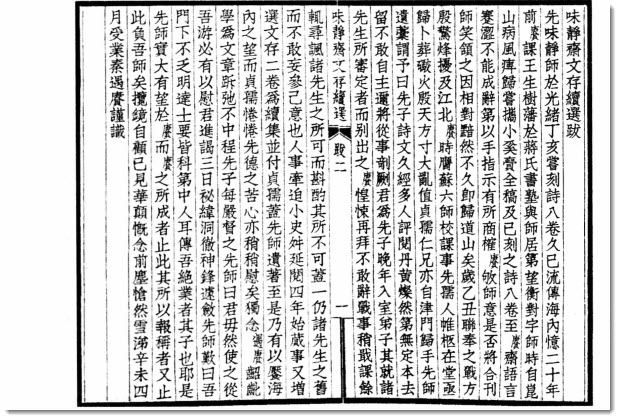 味靜齋文存續選跋
先味靜師於光緒丁亥嘗刻詩八卷久已流傳海內憶二十年
前賡課王生樹藩於蔣氏書塾與師居第望衡對宇師時自崑
山病風痺歸嘗攜小奚齎全稿及已刻之詩八卷至賡齋語言
蹇澀不能成辭第以手指示有所商榷賡敂師意是否將合刊
師笑頷之因相對黯然不久即歸道山矣歲乙丑聯奉之戰方
殷驚烽擾及江北賡時膺蘇六師校課事先孺人帷柩在堂亟
歸卜葬礮火殷天方寸大亂值貞孺仁兄亦自津門歸手先師
遺藁謂予曰先子詩文久經多人評閱丹黃燦然第無定本去
留不敢自主邇將從事剞劂君為先子晚年入室弟子其就諸
先生所審定者而别出之賡惶悚再拜不敢辭戰事稍戢課餘
味靜齋文存續選 跋二 一
輒尋諷諸先生之所可而斟酌其所不可葢一仍諸先生之舊
而不敢妄參己意也人事牽迫小史舛延閱四年始蕆事又增
選文存二卷為續集並付貞孺葢先師遺著至是乃有以饜海
內之望而貞孺惓惓先德之苦心亦稍稍慰矣獨念賡齠齔
學為文章跅弛不中程先子每嚴督之先師曰君毋然使之從
吾游必有以慰君進謁三日秘緯洞徹神鋒遽斂先師歎曰吾
門下不乏明達士要皆科第中人耳傳吾絕業者其子也耶是
先師實大有望於賡而賡之所成者止此其所以報稱者又止
此負吾師矣攬鏡自顧已見華顛慨念前塵愴然雪涕辛未四
月受業秦遇賡謹識